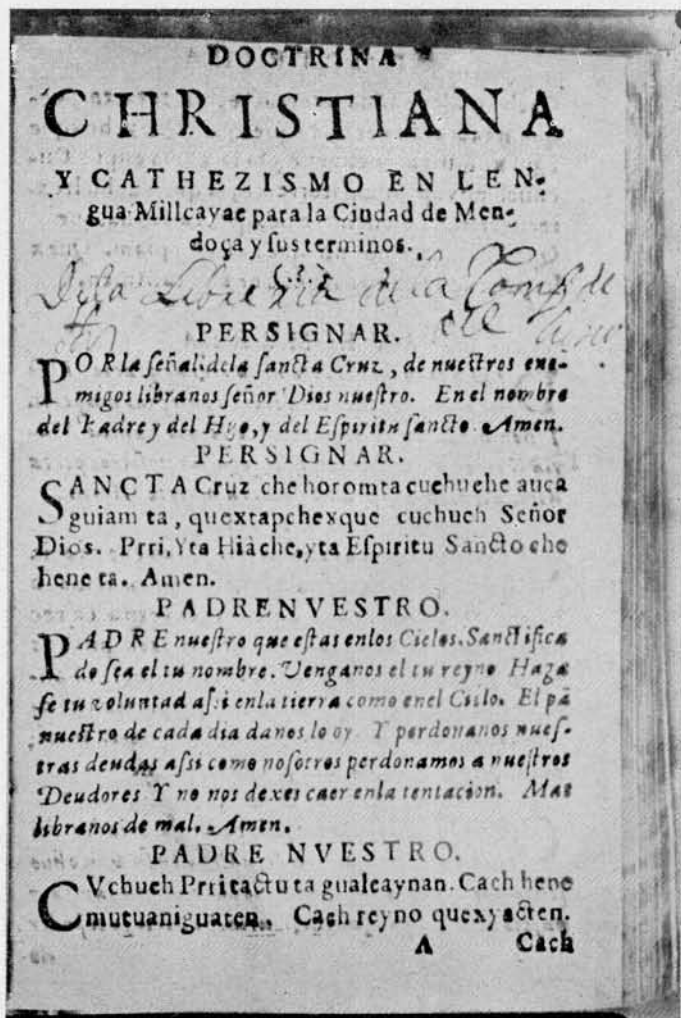 DOCTRINA
CHRISTIANA
Y CATHEZISMO EN LEN-
gua Millcayac para la Ciudad de Men-
doça y sus terminos.
Dela Libreria dela Comp.ª de
PERSIGNAR.
POR la señal dela sancta Cruz, de nuestros ene-
migos libranos señor Dios nuestro. En el nombre
del Padre y del Hijo, y del Espiritu sancto. Amen.
PERSIGNAR.
SANCTA Cruz che horomta cuchuche auca
guiam ta, quextapchexque cuchuch Señor
Dios. Prri, Yta Hiàche, yta Espiritu Sancto che
hene ta. Amen.
PADRENVESTRO.
PADRE nuestro que estas enlos Cielos. Sanctifica
do sea el tu nombre. Venganos el tu reyno Haga
se tu voluntad assi enla tierra como enel Cielo. El pã
nuestro de cada dia danos lo oy Y perdonanos nues-
tras deudas assi como nosotros perdonamos a nuestros
Deudores Y no nos dexes caer enla tentacion. Mas
libranos de mal. Amen.
PADRE NVESTRO.
CVchuch Prri tactu ta gualcaynan. Cach hene
mutuaniguaten. Cach reyno quexyacten.
A Cach